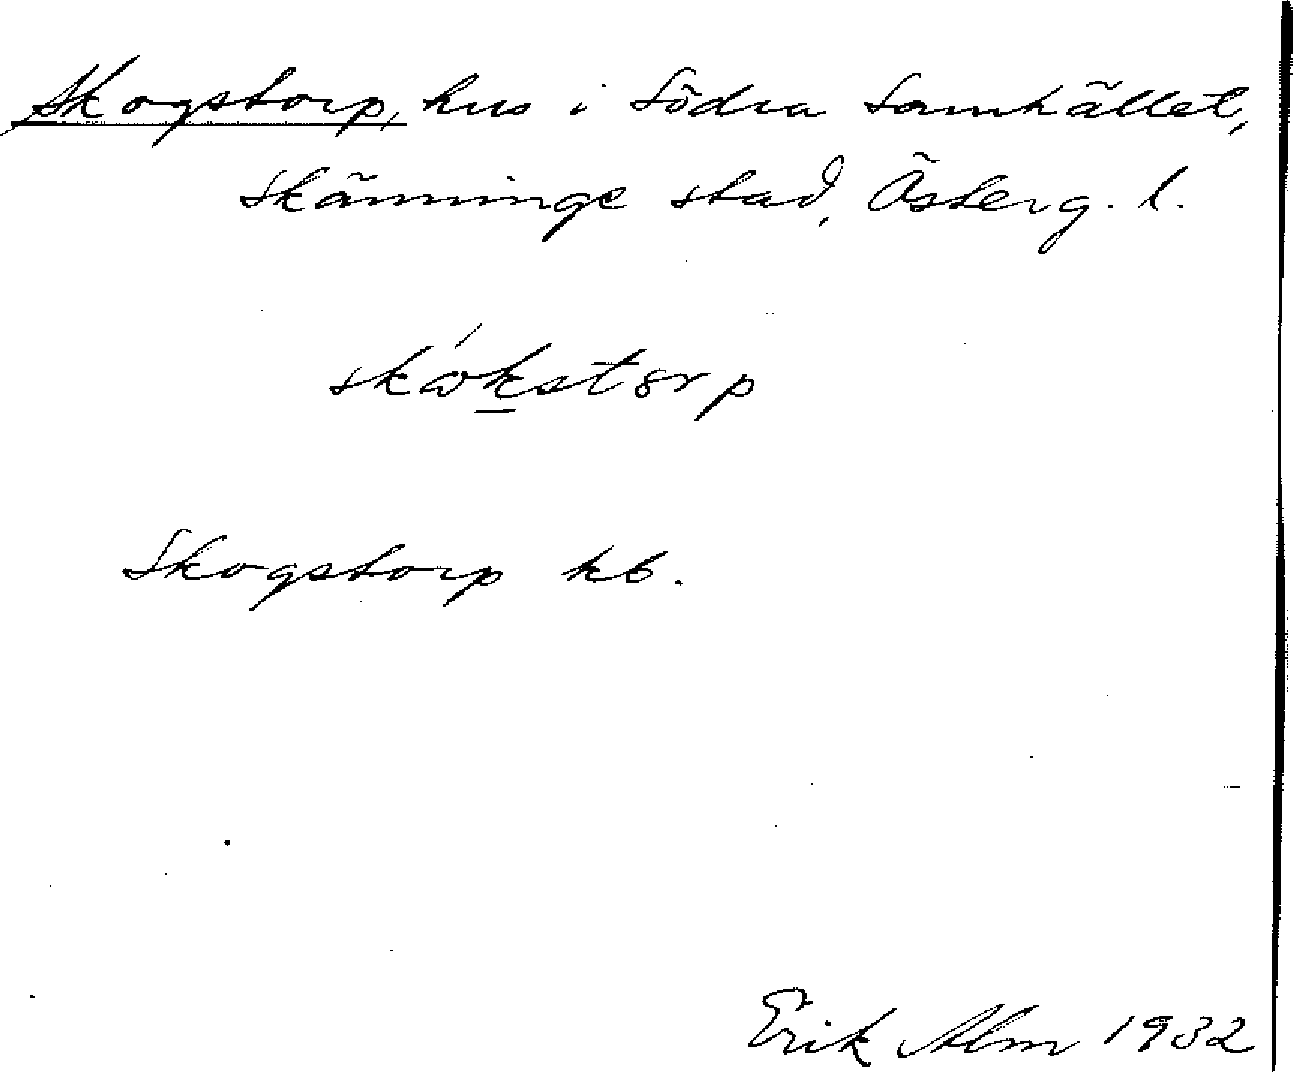 Skogstorp, hus i Södra Samhället,
Skänninge stad, Österg. l.
skɷ́kstorp
Skogstorp kb.
Erik Alm 1932